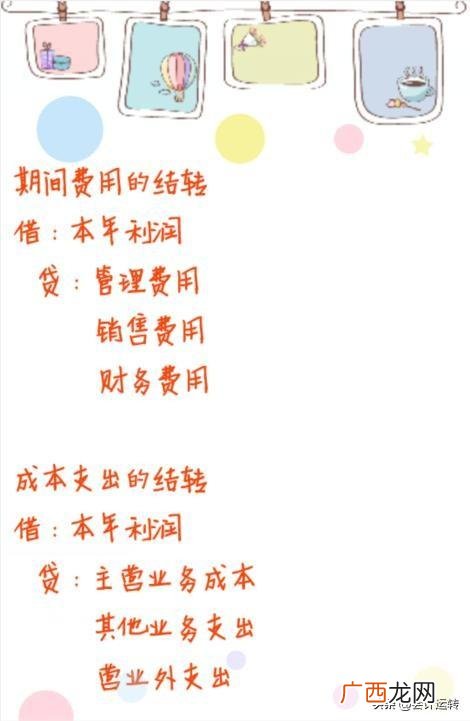 期间费用的结转
借：本年利润
贷：管理费用
销售费用
财务费用
成本支出的结转
借：本年利润
贷：主营业务成本
其他业务支出
营业外支出
广西龙网
头条@会计运转